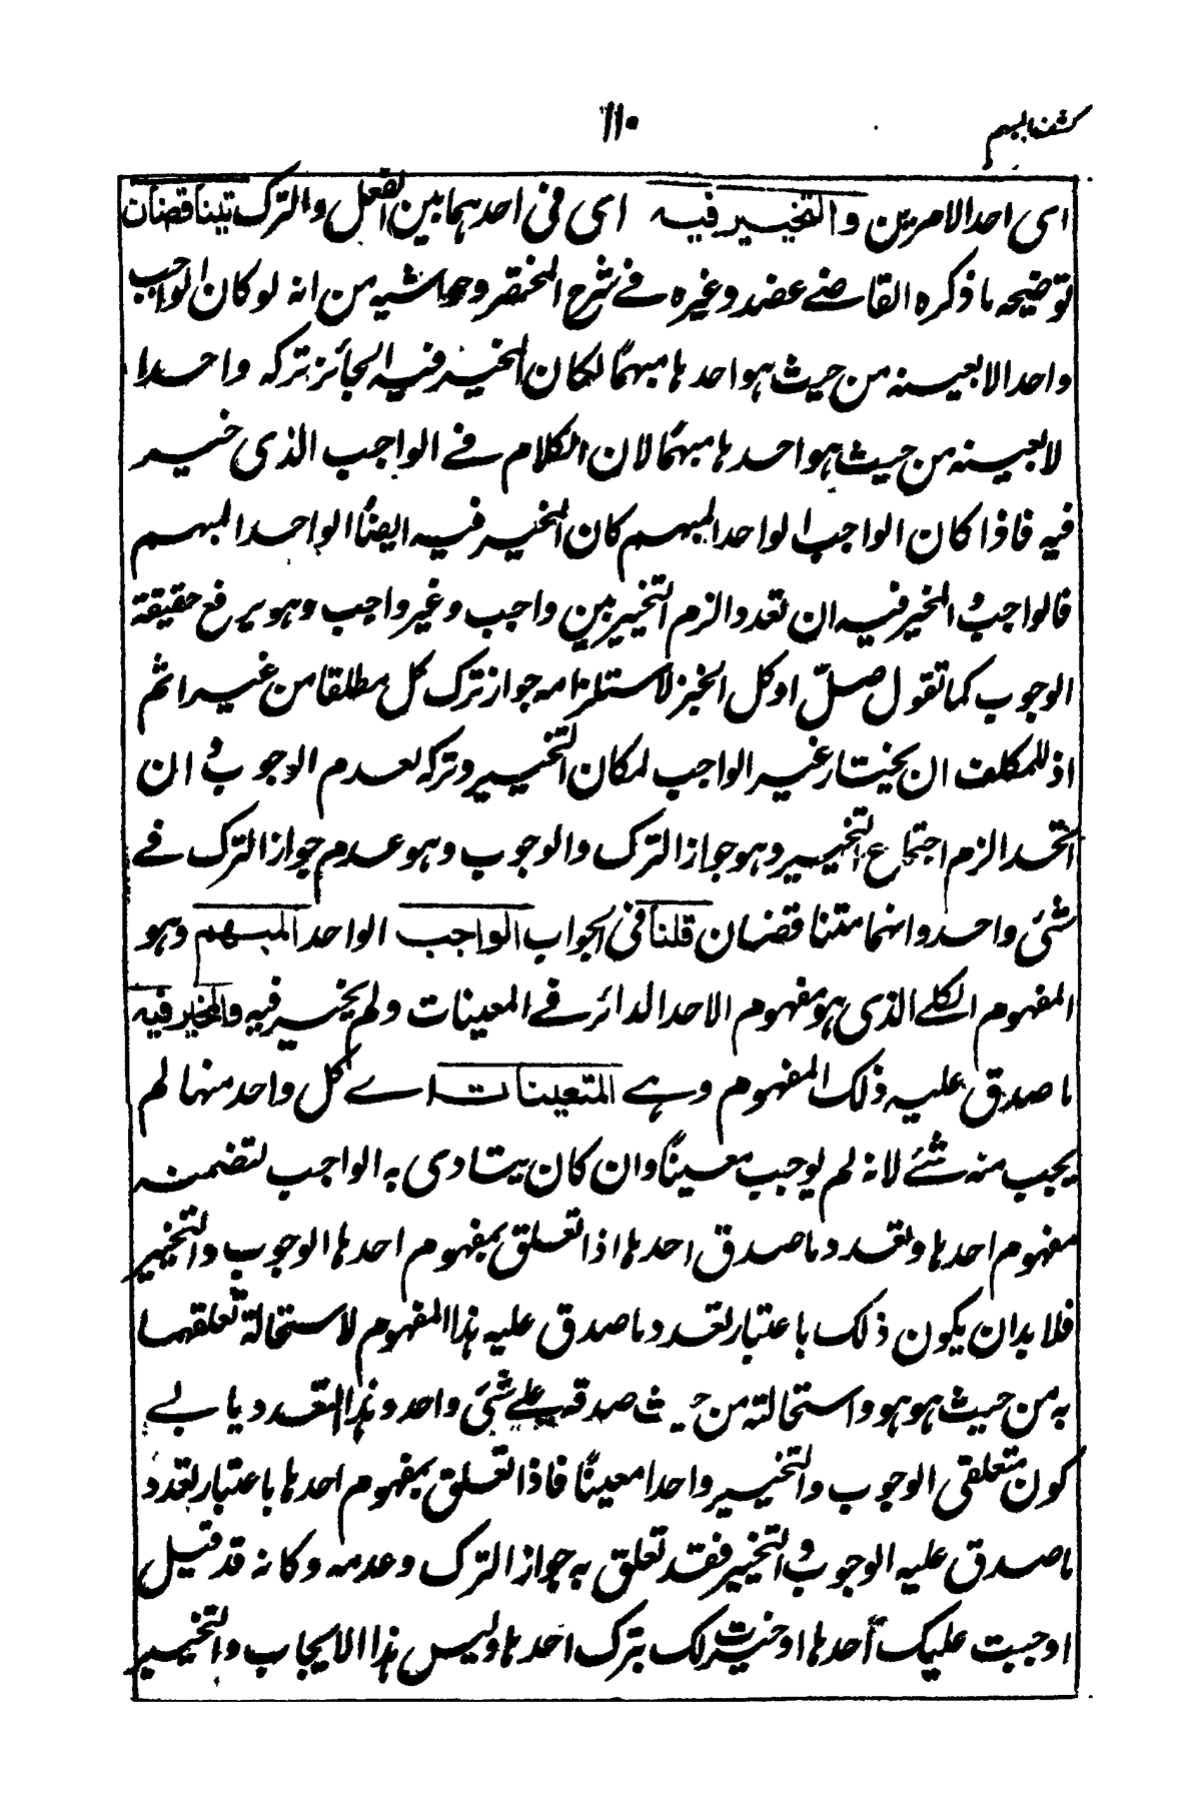 كشف المبهم
١١٠
اى احد الامرين والتخيير فيه اى فى احدهما بين الفعل والترك يتناقضان
توضيحه ما ذكره القاضے عضد وغيره فے شرح المختصر وحواشيه من انه لو كان الواجب
واحدا لا بعينه من حيث هو احدها مبهمًا لكان المخير فيه الجائز تركه واحدا
لا بعينه من حيث هو احدها مبهمًا لان الكلام فے الواجب الذى خير
فيه فاذا كان الواجب الواحد المبهم كان المخير فيه ايضًا الواحد المبهم
فالواجب و المخير فيه ان تعددا لزم التخيير بين واجب وغير واجب وهو يرفع حقيقة
الوجوب كما تقول صلّ او كل الخبز لاستلزامه جواز ترك كل مطلقا من غير اثم
اذ للمكلف ان يختار غير الواجب لمكان التخيير وتركه لعدم الوجوب و ان
اتحدا لزم اجتماع التخيير وهو جواز الترك والوجوب وهو عدم جواز الترك فے
شئ واحد وانهما متناقضان قلنا فى الجواب الواجب الواحد المبهم وهو
المفهوم الكلے الذى هو مفهوم الاحد الدائر فے المعينات ولم يخير فيه والمخير فيه
ما صدق عليه ذلك المفهوم وهے المتعينات اے كل واحد منها لم
يجب منه شئے لانه لم يوجب معينًا وان كان يتادى به الواجب لتضمنه
مفهوم احدها وتعدد ما صدق احدها اذا تعلق بمفهوم احدها الوجوب والتخيير
فلا بد ان يكون ذلك باعتبار تعدد ما صدق عليه هذا المفهوم لاستحالة تعلقهما
به من حيث هو هو واستحالته من حيث صدقه علے شئ واحد وهذا التعدد يابے
كون متعلقى الوجوب والتخيير واحدا معينًا فاذا تعلق بمفهوم احدها باعتبار تعدد
ما صدق عليه الوجوب و التخيير فقد تعلق به جواز الترك وعدمه وكانه قد قيل
اوجبت عليك أحدها او خيرت لك بترك احدها وليس هذا الايجاب والتخيير